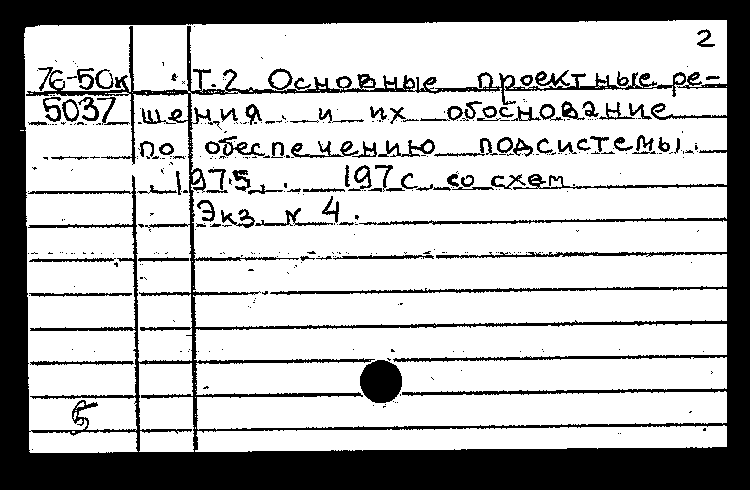 2
76-50к Т.2. Основные проектные ре-
5037 шения и их обоснование
по обеспечению подсистемы.
1975. 197с. со схем.
Экз. N 4.
Б